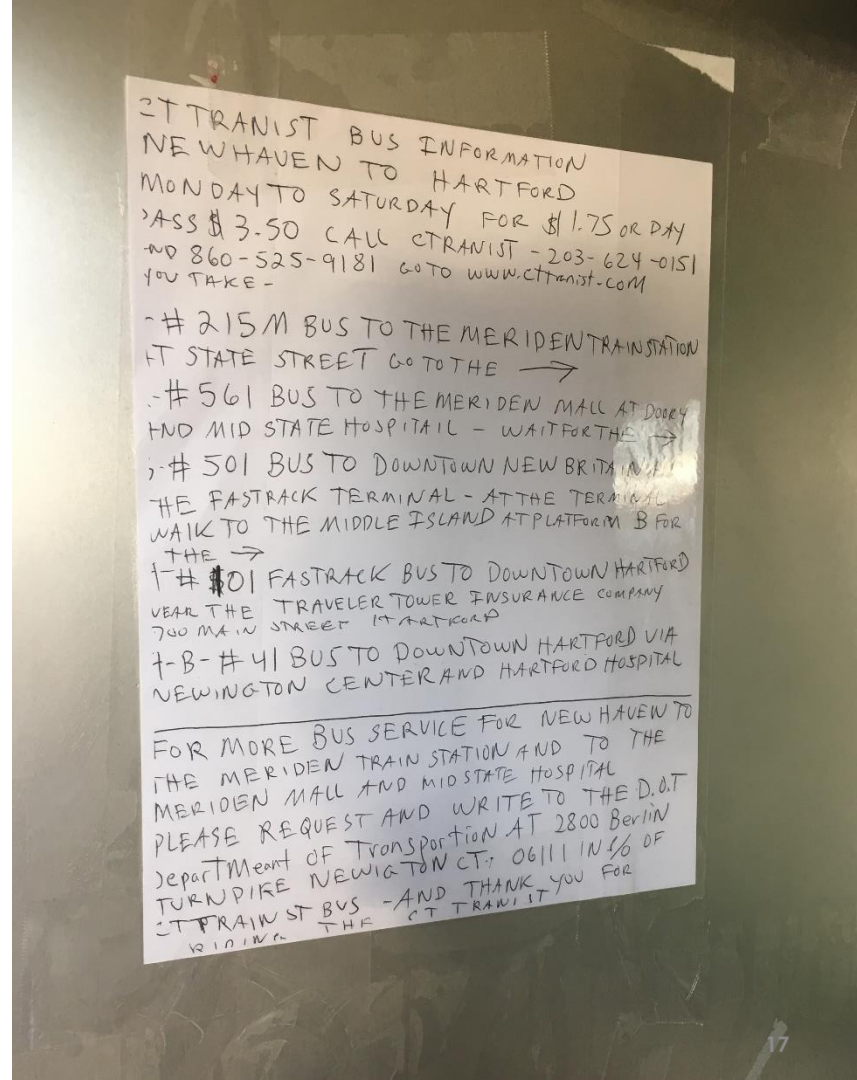 CT TRANIST BUS INFORMATION
NEWHAVEN TO HARTFORD
MONDAY TO SATURDAY FOR $1.75 OR DAY
PASS $3.50 CALL CTRANIST - 203-624-0151
AND 860-525-9181 GOTO www.cttranist.com
YOU TAKE -
- # 215 M BUS TO THE MERIDEN TRAIN STATION
AT STATE STREET GO TO THE →
- # 561 BUS TO THE MERIDEN MALL AT DOOR 4
AND MID STATE HOSPITAIL - WAIT FOR THE →
- # 501 BUS TO DOWNTOWN NEW BRITAIN
THE FASTRACK TERMINAL - AT THE TERMINAL
WAIK TO THE MIDDLE ISLAND AT PLATFORM B FOR
THE →
- # 101 FASTRACK BUS TO DOWNTOWN HARTFORD
NEAR THE TRAVELER TOWER INSURANCE COMPANY
700 MAIN STREET HARTFORD
- B - # 41 BUS TO DOWNTOWN HARTFORD VIA
NEWINGTON CENTER AND HARTFORD HOSPITAL
FOR MORE BUS SERVICE FOR NEW HAVEN TO
THE MERIDEN TRAIN STATION AND TO THE
MERIDEN MALL AND MIDSTATE HOSPITAL
PLEASE REQUEST AND WRITE TO THE D.O.T
DeparTMeant OF Transportion AT 2800 Berlin
TURNPIKE NEWIGTON CT. 06111 IN c/o OF
CT TRAINST BUS - AND THANK YOU FOR
RIDING THE CT TRANIST
17